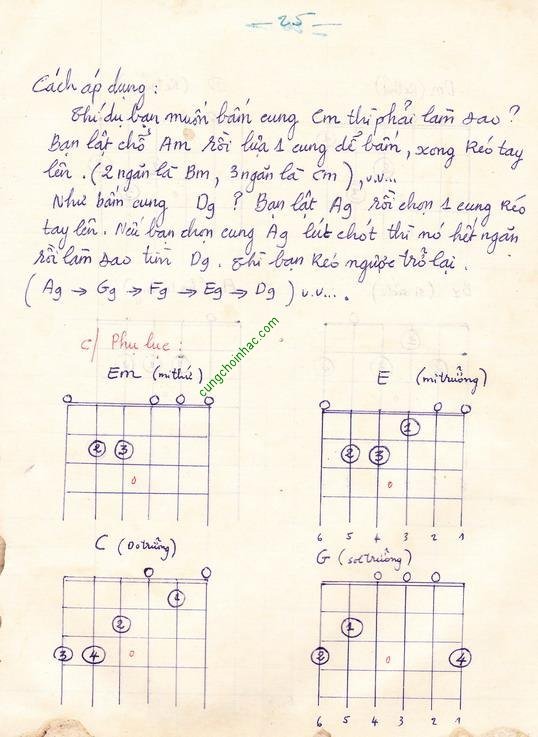 - 25 -
Cách áp dụng :
Thí dụ bạn muốn bấm cung Cm thì phải làm sao ?
Bạn lật chỗ Am rồi lựa 1 cung dễ bấm, xong kéo tay
lên . (2 ngăn là Bm, 3 ngăn là Cm ), v.v...
Như bấm cung Dg ? Bạn lật Ag rồi chọn 1 cung kéo
tay lên . Nếu bạn chọn cung Ag lút chót thì nó hết ngăn
rồi làm sao tìm Dg . Thì bạn kéo ngược trở lại .
( Ag → Gg → Fg → Eg → Dg ) v.v... .
c/ Phụ lục :
cungchoinhac.com
Em (mi thứ)
E (mi trưởng)
2 3
1
2 3
6 5 4 3 2 1
C (Do trưởng)
G (sol trưởng)
1
2
3 4
1
2 4
6 5 4 3 2 1